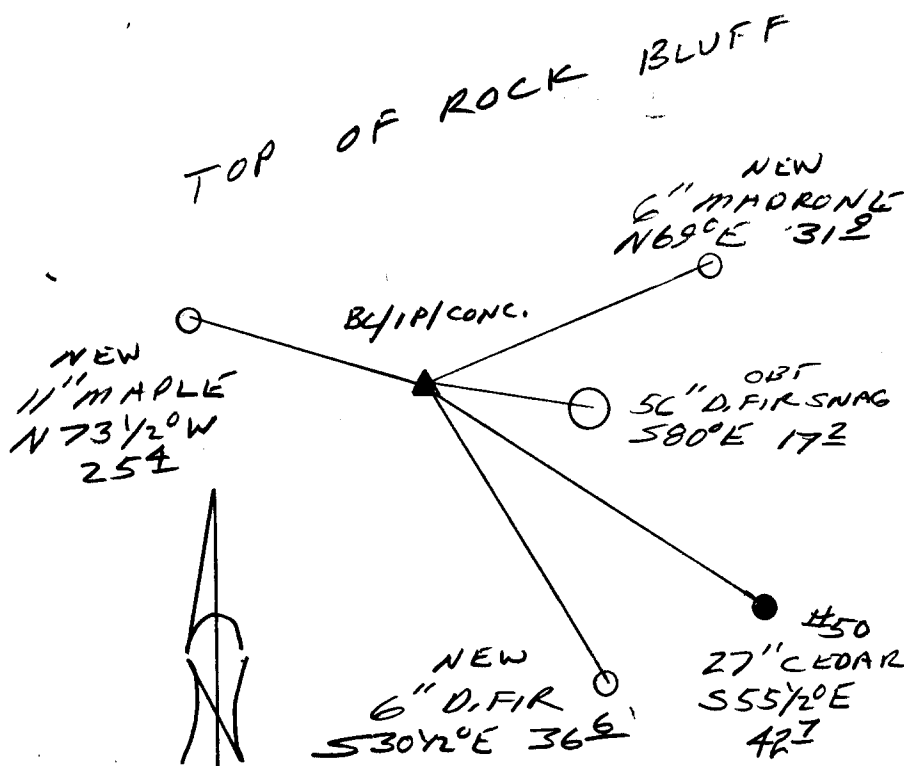 TOP OF ROCK BLUFF
NEW
6" MADRONE
N69°E 31 9
BC/IP/CONC.
NEW
11" MAPLE
N 73 1/2° W
25 4
OBT
56" D. FIR SNAG
S80°E 17 2
#50
27" CEDAR
S55 1/2° E
42 7
NEW
6" D. FIR
S30 1/2° E 36 6